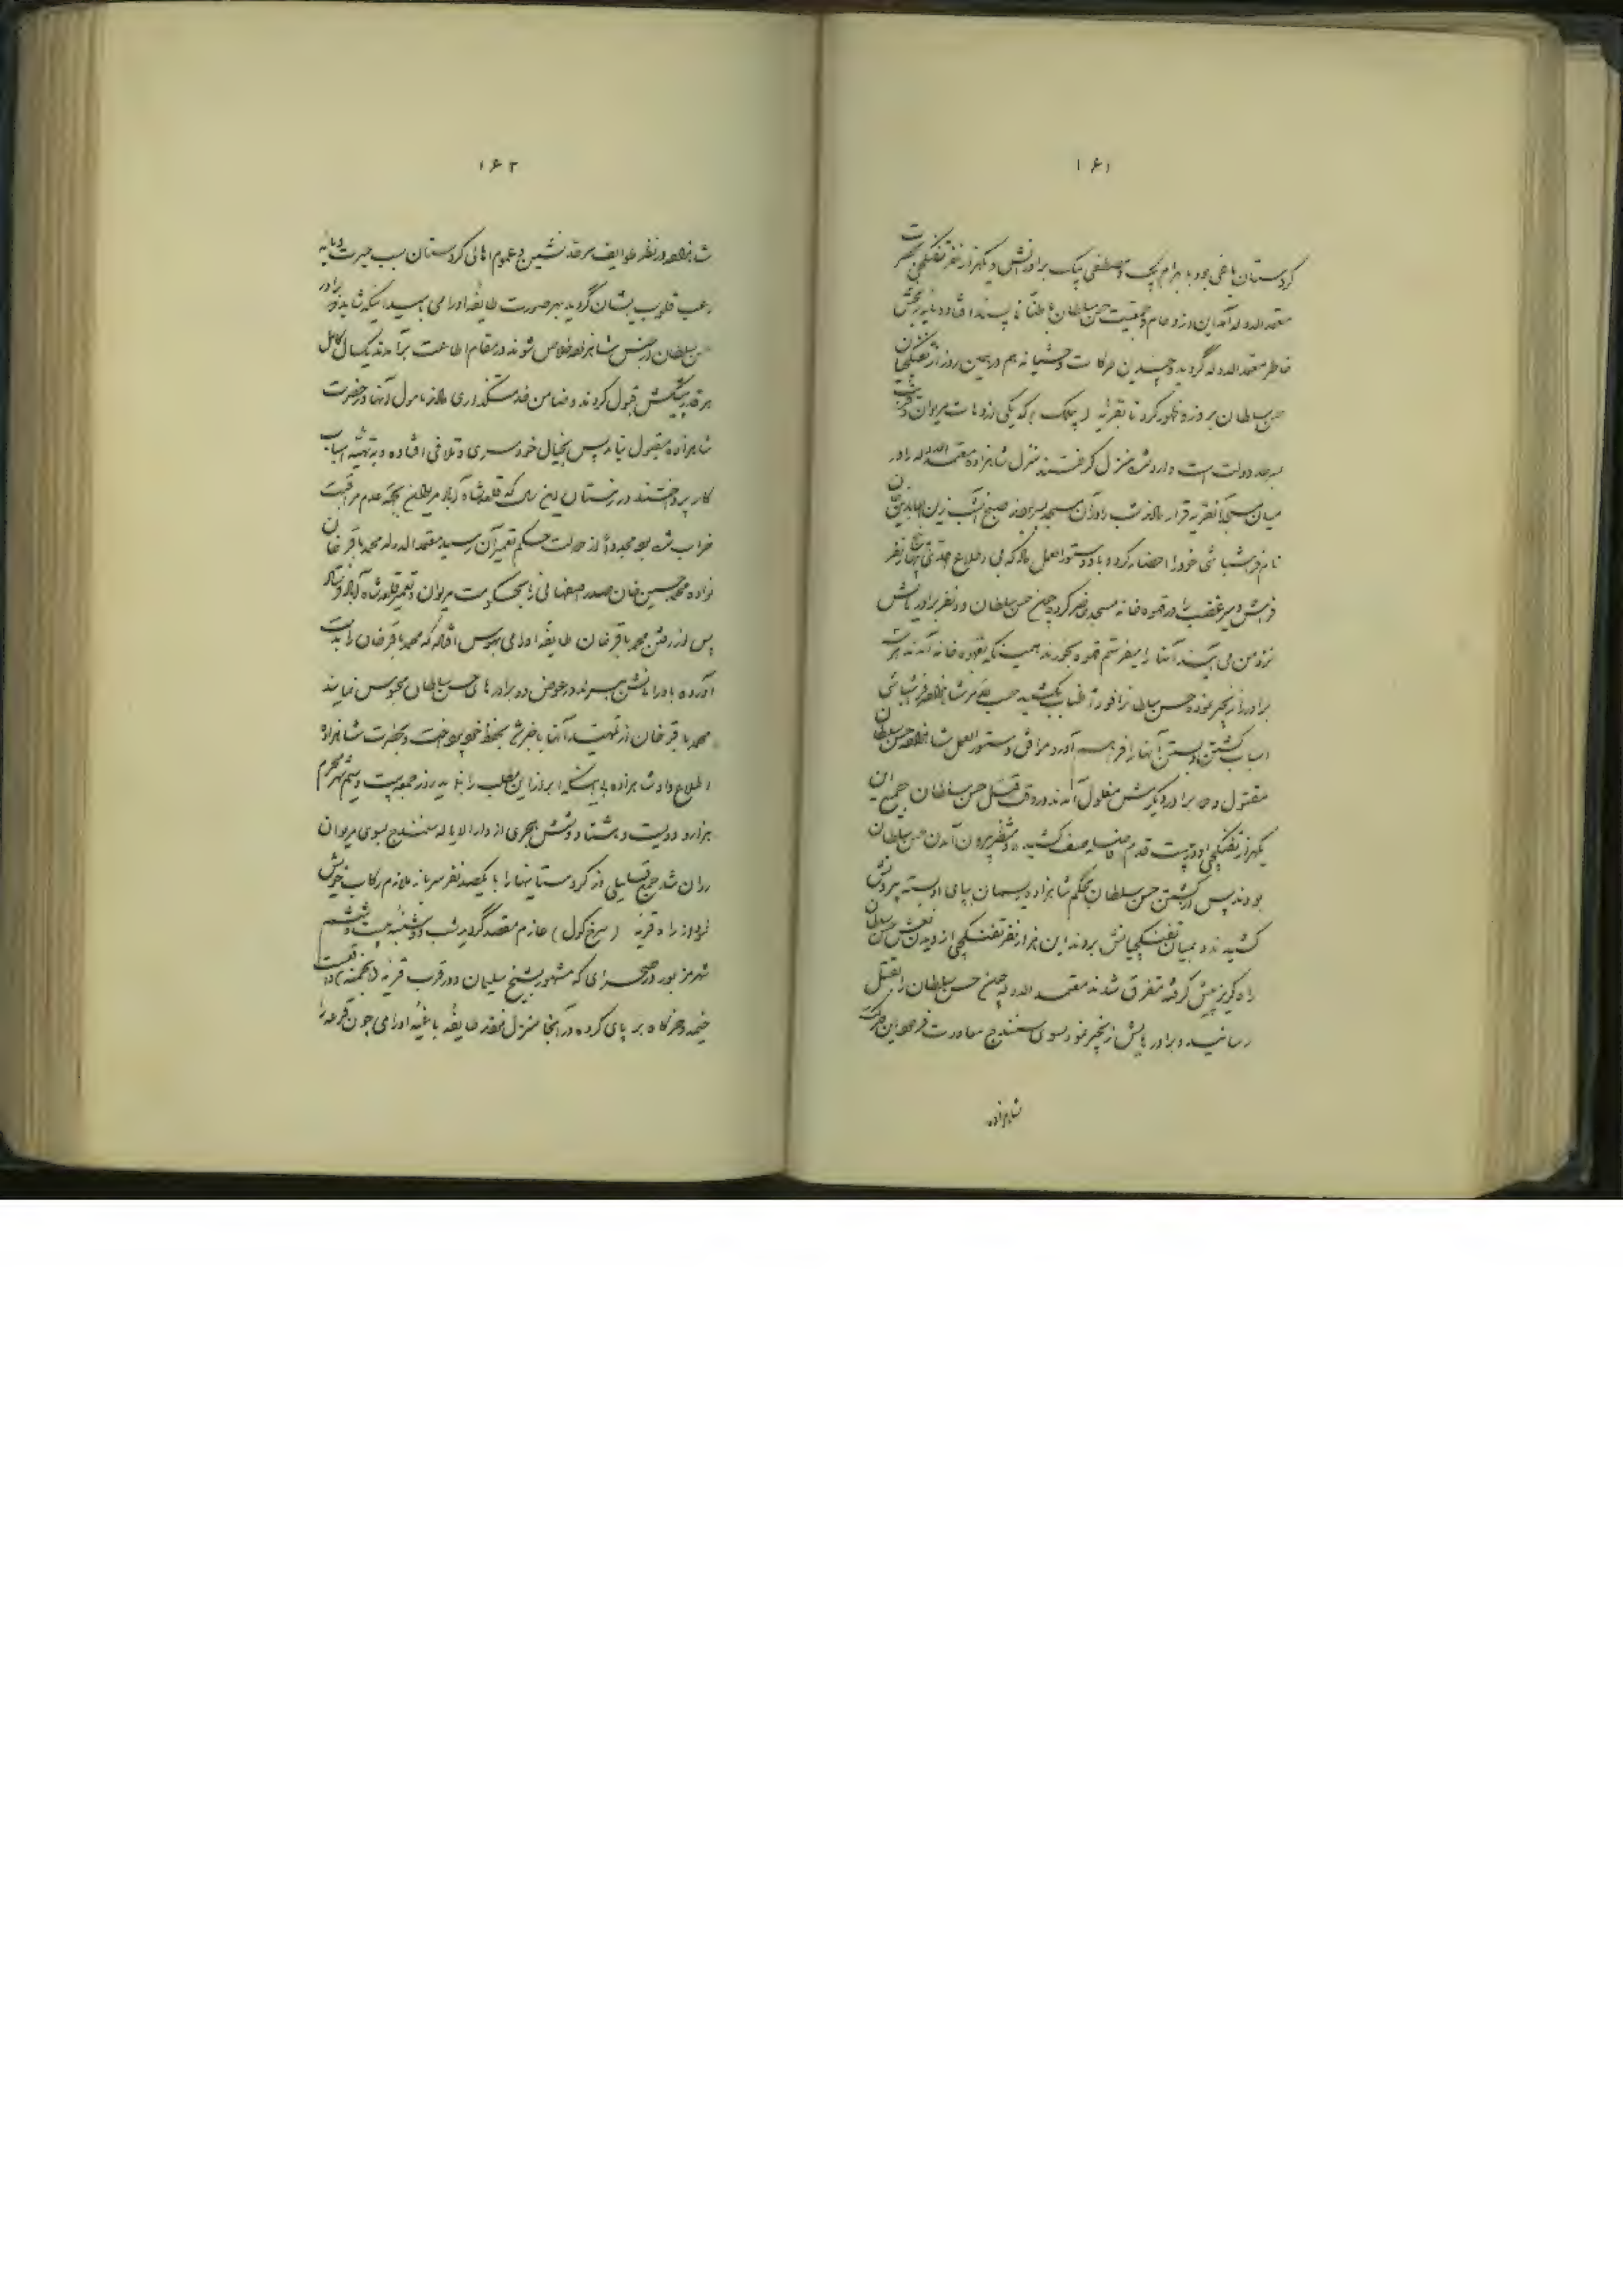 ۱۶۱
کردستان یاغی بود با بهرام بیک و مصطفی بیک برادرانش و یکهزار نفر تفنگچی بحضرت
معتمدالدوله آمد این ازدحام و جمعیت حسن سلطان باطناً ناپسند افتاد و مایه رنجش
خاطر معتمدالدوله گردید و چندین حرکات وحشیانه هم در همین روز از تفنگچیان
حسن سلطان بروز و ظهور کرد تا بقریه که یکی از دهات مریوان و
سرحد دولت است وارد شده منزل گرفتند منزل شاهزاده معتمدالدوله را در
میان مسجد آنقریه قرار دادند شب را در آن مسجد بسر برده صبح آنشب زین العابدین
نام فراشباشی خود را احضار کرده باو دستورالعمل داد که بی اطلاع احدی پنج نفر
فراش و میرغضب را در قهوه خانه مسجد حاضر کرده چون حسن سلطان و دو نفر برادرهایش
نزد من می آیند آنها را میفرستم قهوه بخورند همینکه بقهوه خانه آمدند هر
برادر را زنجیر نموده حسن سلطان را فوراً طناب بکشید حسب الامر شاهزاده فراشباشی
اسباب کشتن و بستن آنها را فراهم آورد موافق دستورالعمل شاهزاده حسن سلطان
مقتول و دو برادر دیگرش مغلول آمدند در وقت قتل حسن سلطان جمیع آن
یکهزار تفنگچی در دویست قدم فاصله صف کشیده و منتظر بیرون آمدن حسن سلطان
بودند پس از کشتن حسن سلطان بحکم شاهزاده ریسمان بپای او بسته بیرونش
کشیدند و بمیان تفنگچیانش بردند این هزار نفر تفنگچی از دیدن نعش حسن سلطان
راه گریز پیش گرفته متفرق شدند معتمدالدوله چون حسن سلطان را بقتل
رسانید و برادرهایش را زنجیر نمود بسوی سنندج معاودت فرمود این حرکت
شاهزاده
۱۶۲
شاهزاده در نظر طوایف سرحد نشین و عموم اهالی کردستان سبب حیرت و مایه
رعب قلوب ایشان گردید بهر صورت طایفه اورامی بامید اینکه شاید دو برادر
حسن سلطان از حبس شاهزاده خلاص شوند در مقام اطاعت برآمدند یکسال کامل
هر قدر پیشکش قبول کردند و ضامن خدمتگذاری دادند مامول آنها در حضرت
شاهزاده مقبول نیامد پس بخیال خودسری و تلافی افتاده و به تهیه اسباب
کار پرداختند در زمستان این سال که قلعه شاه آباد مریوان بجهة عدم مراقبت
خراب شده بود مجدداً از دولت حکم تعمیر آن رسید معتمدالدوله محمد باقر خان
نواده محمد حسین خان صدر اصفهانی را بحکومت مریوان و تعمیر قلعه شاه آباد فرستاد
پس از رفتن محمد باقر خان طایفه اورامی بهوس افتاد که محمد باقر خان را بدست
آورده باورامانش ببرند در عوض دو برادرهای حسن سلطان محبوس نمایند
محمد باقر خان از تمهید آنها باخبر شد بحفظ خود پرداخت و بحضرت شاهزاده
اطلاع داد شاهزاده بی اینکه ابراز این مطلب را نماید روز جمعه بیست و سیم شهر محرم
هزار و دویست و هشتاد و شش هجری از دارالایاله سنندج بسوی مریوان
روان شد جمع قلیلی از کردستانیها را با یکصد نفر سرباز ملازم رکاب خویش
نمود از راه قریه (سرخ کول) عازم مقصد گردید شب دوشنبه بیست و ششم
شهر مزبور در صحرای که مشهور بشیخ سلیمان و در قرب قریه است
خیمه و خرگاه بر پای کرده در آنجا منزل نمود طایفه باغیه اورامی چون قرعه را